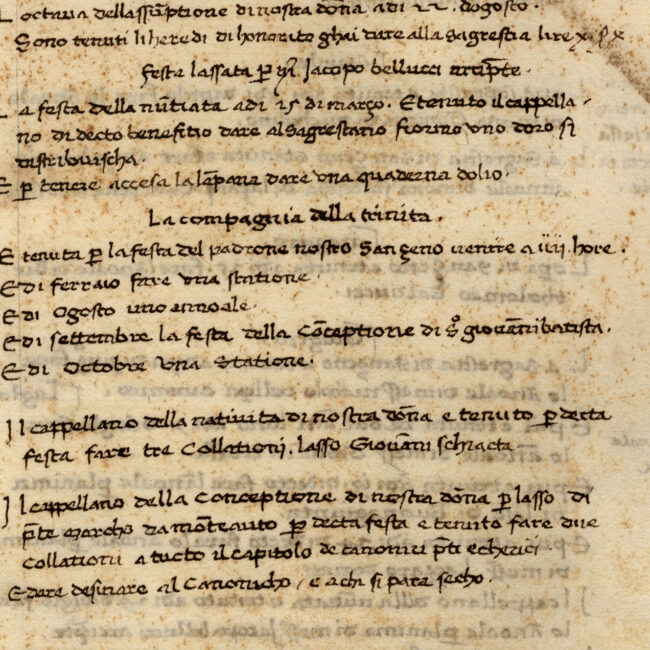 L octava dellassūptione di nostra dōna a di 22. dogosto.
Sono tenuti li heredi di honorito ghai dare alla Sagrestia lire x. s x
festa lassata p Jacopo bellucci
L a festa della nūtiata a di 25 di março. E tenuto il cappella
no di decto benefitio dare al Sagrestano fiorino uno doro si
distribuischa.
E p tenere accesa la lāpana dare una quaderna dolio.
La compagnia della trinita.
E tenuta p la festa del padrone nostro San geno venire a iiii. hore.
E di ferraio fare una statione.
E di Ogosto uno annoale.
E di settembre la festa della Cōceptione di So giovāni batista.
E di Octobre una Statione.
I l cappellano della nativita di nostra dōna e tenuto p decta
festa fare tre Collationi. lasso Giovāni schiacta
I l cappellano della Conceptione di nostra dōna p lasso di
pte Marcho da mōteauto p decta festa e tenuto fare due
Collationi a tucto il capitolo de canonici pti e cherici.
E dare desinare al Canonicho, e a chi si para secho.